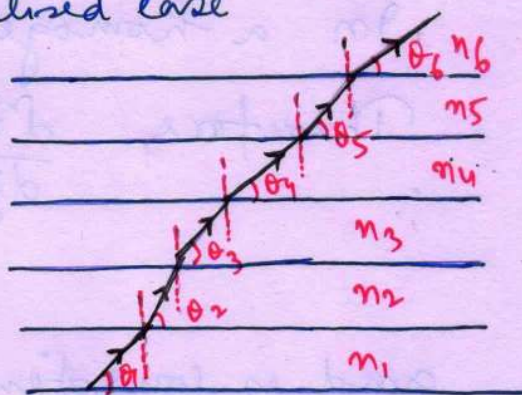 lised case
θ6 n6
n5
θ5
n4
θ4
n3
θ3
n2
θ2
n1
θ1